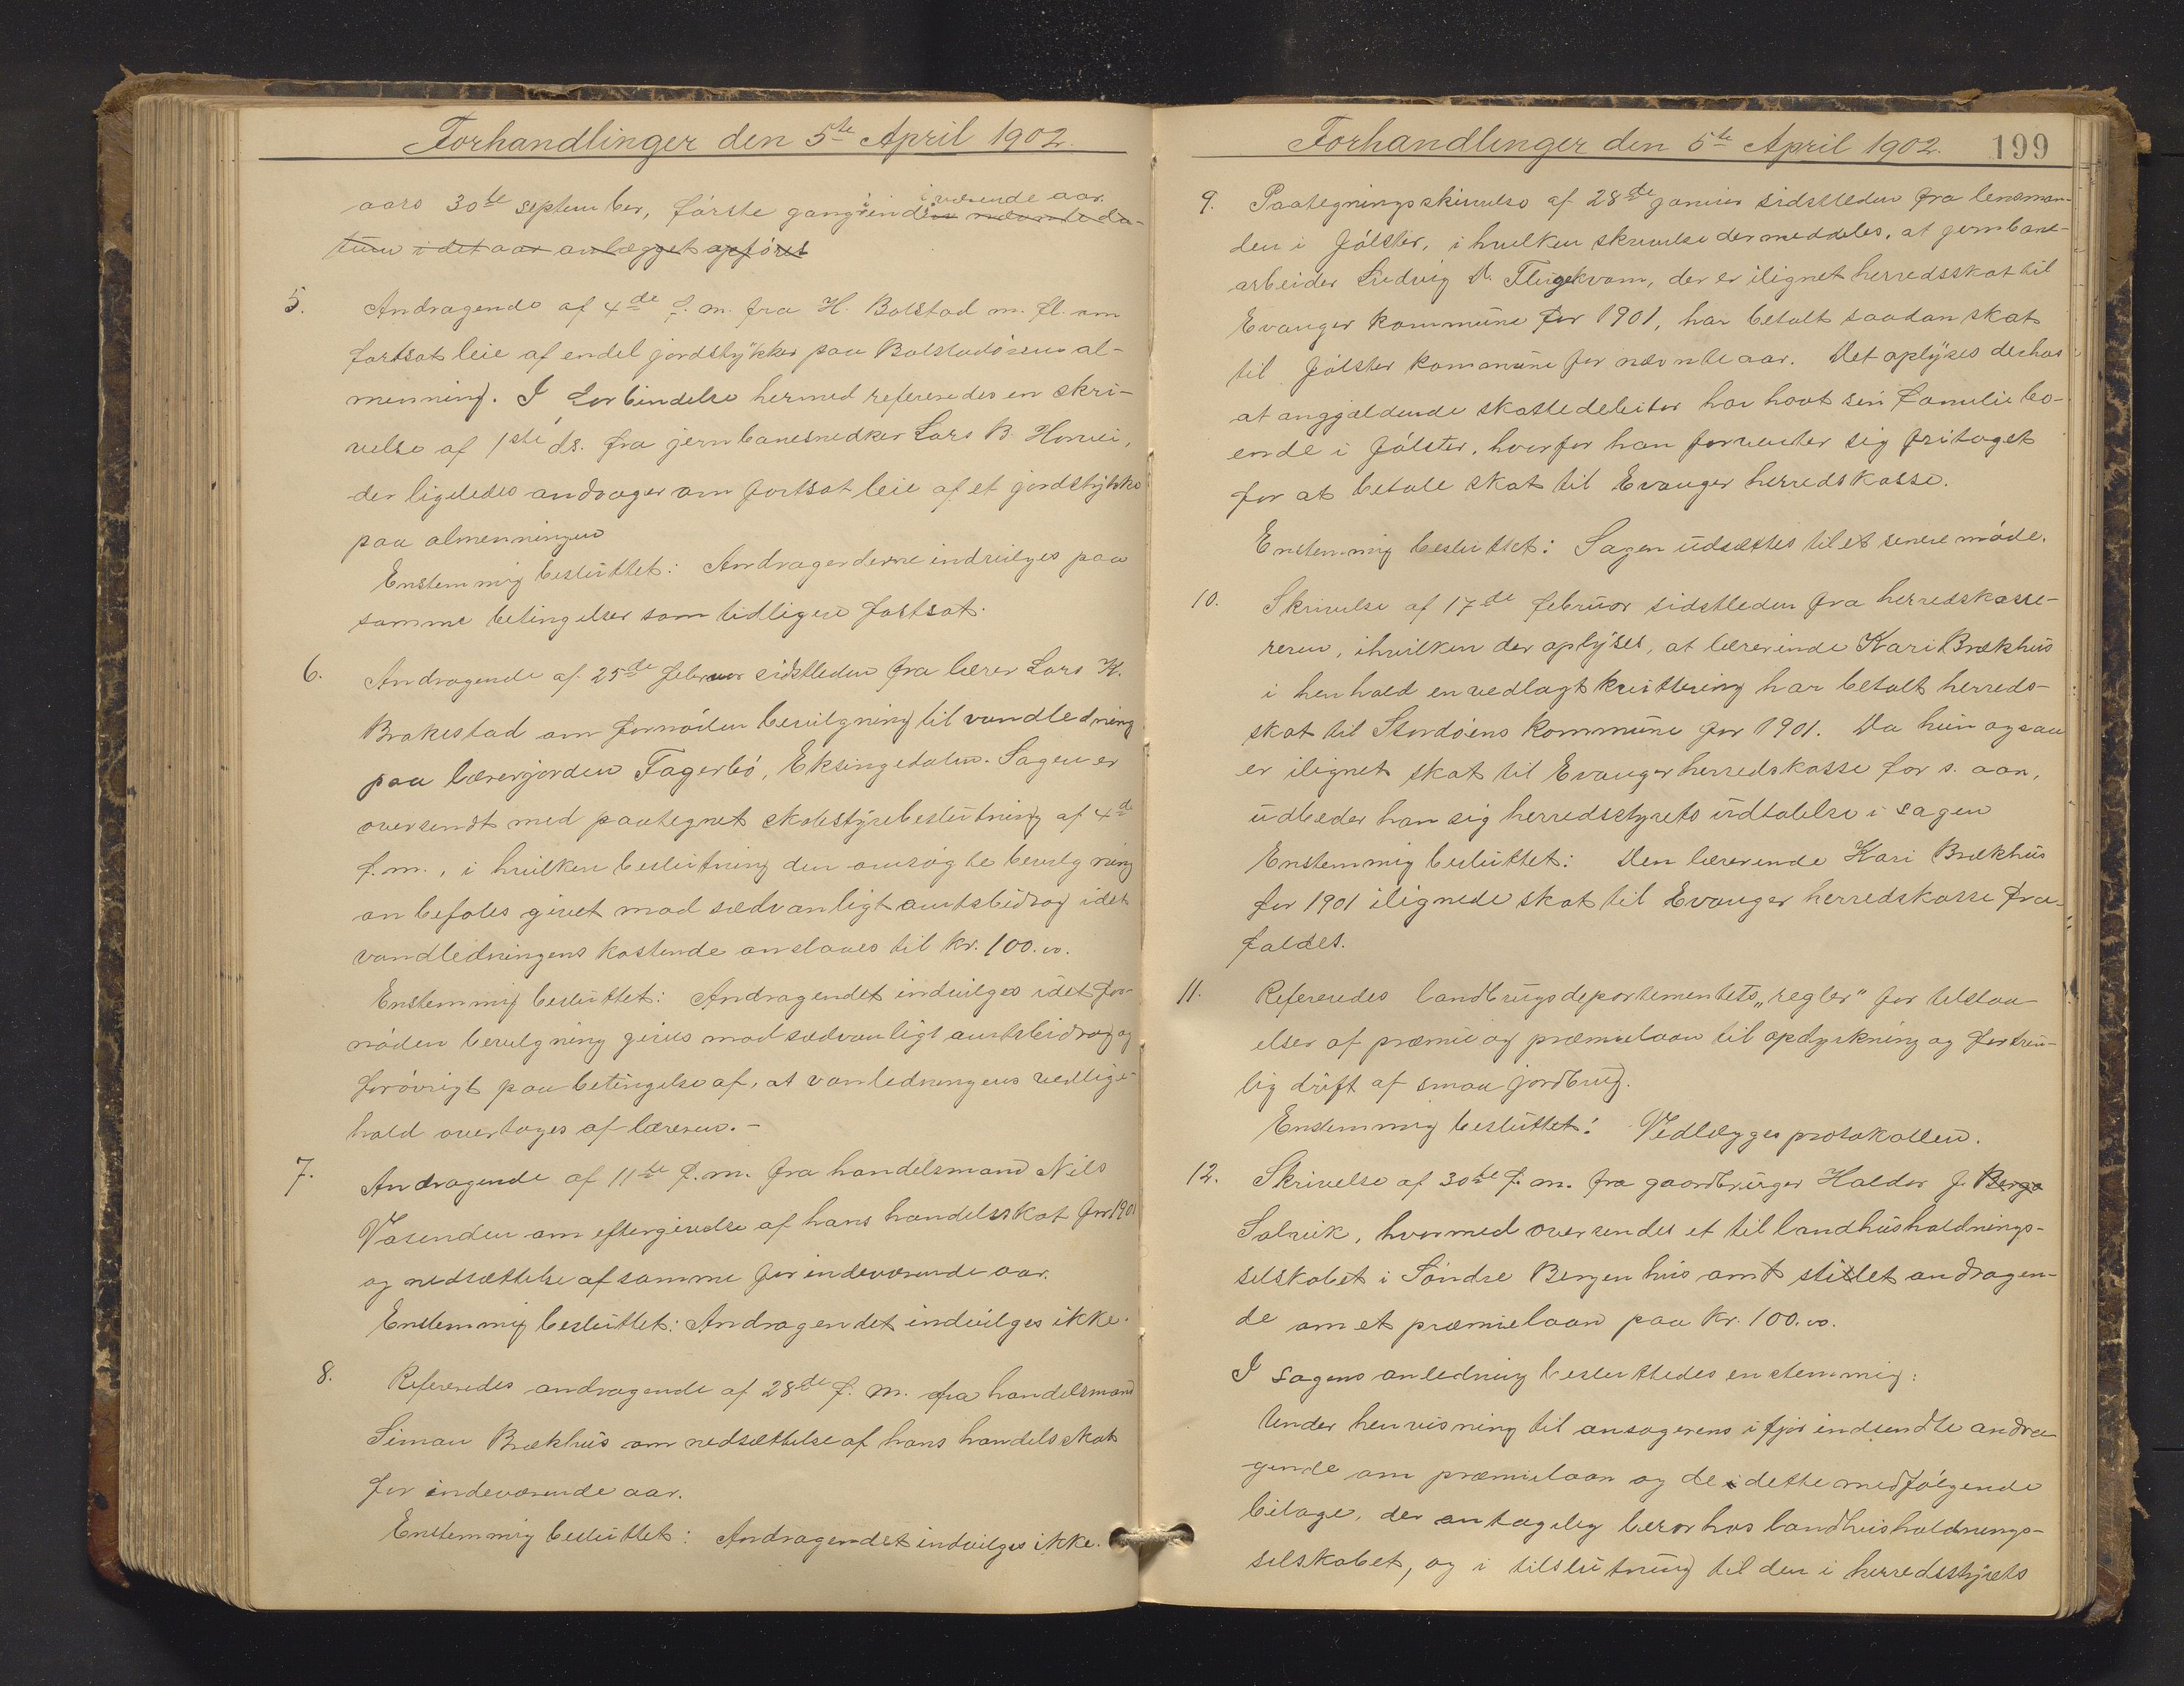 Forhandlinger den 5te April 1902.
aars 30te september, første gang i indeværende aar.
5. Andragende af 4de f. m. fra H. Bolstad m. fl. om
fortsat leie af endel jordstykker paa Bolstadørens al-
menning. I forbindelse hermed refereredes en skri-
velse af 1ste ds. fra jernbanesnedker Lars B. Horvei,
der ligeledes andrager om fortsat leie af et jordstykke
paa almenningen
Enstemmig besluttet: Andragenderne indvilges paa
samme betingelser som tidligere fastsat.
6. Andragende af 25de februar sidstleden fra lærer Lars K.
Brakestad om fornøden bevilgning til vandledning
paa lærerjorden Fagerbø, Eksingedalen. Sagen er
oversendt med paategnet skolestyrebeslutning af 4de
f. m., i hvilken beslutning den ansøgte bevilgning
anbefales givet mod sædvanligt amtsbidrag idet
vandledningens kostende anslaaes til kr. 100.00.
Enstemmig besluttet: Andragendet indvilges idet for-
nøden bevilgning gives mod sædvanligt amtsbidrag og
forøvrigt paa betingelse af, at vanledningens vedlige-
hold overtages af læreren. -
7. Andragende af 11te f. m. fra handelsmand Nils
Vasenden om eftergivelse af hans handelsskat for 1901
og nedsættelse af samme for indeværende aar.
Enstemmig besluttet: Andragendet indvilges ikke.
8. Refereredes andragende af 28de f. m. fra handelsmand
Simon Brækhus om nedsættelse af hans handelsskat
for indeværende aar.
Enstemmig besluttet: Andragendet indvilges ikke.
Forhandlinger den 5te April 1902. 199
9. Paategningsskrivelse af 28de januar sidstleden fra lensman-
den i Jølster, i hvilken skrivelse der meddeles, at jernbane-
arbeider Ludvig D. Flugekvam, der er ilignet herredsskat til
Evanger kommune for 1901, har betalt saadan skat
til Jølster kommune for nævnte aar. Det oplyses derhos
at angjældende skattedebitor har havt sin familie bo-
ende i Jølster, hvorfor han forventer sig fritaget
for at betale skat til Evanger herredskasse.
Enstemmig besluttet: Sagen udsættes til et senere møde.
10. Skrivelse af 17de februar sidstleden fra herredskasse-
reren, i hvilken der oplyses, at lærerinde Kari Brækhus
i henhold en vedlagt kvittering har betalt herreds-
skat til Stordøens kommune for 1901. Da hun ogsaa
er ilignet skat til Evanger herredskasse for s. aar,
udbeder han sig herredsstyrets udtalelse i sagen
Enstemmig besluttet: Den lærerinde Kari Brækhus
for 1901 ilignede skat til Evanger herredskasse fra-
faldes.
11. Refereredes landbrugsdepartementets "regler" for tilstaa-
elser af præmie og præmielaan til opdyrkning og fortrin-
lig drift af smaa jordbrug.
Enstemmig besluttet: Vedlægges protokollen.
12. Skrivelse af 30te f. m. fra gaardbruger Haldor J. Berge
Solvik, hvormed oversendes et til landhusholdnings-
selskabet i Søndre Bergenhus amt stillet andragen-
de om et præmielaan paa kr. 100.00.
I sagens anledning besluttedes enstemmig:
Under henvisning til ansøgerens ifjor indsendte andra-
gende om præmielaan og de i dette medfølgende
bilage, der antagelig beror hos landhusholdnings-
selskabet, og i tilslutning til den i herredsstyrets